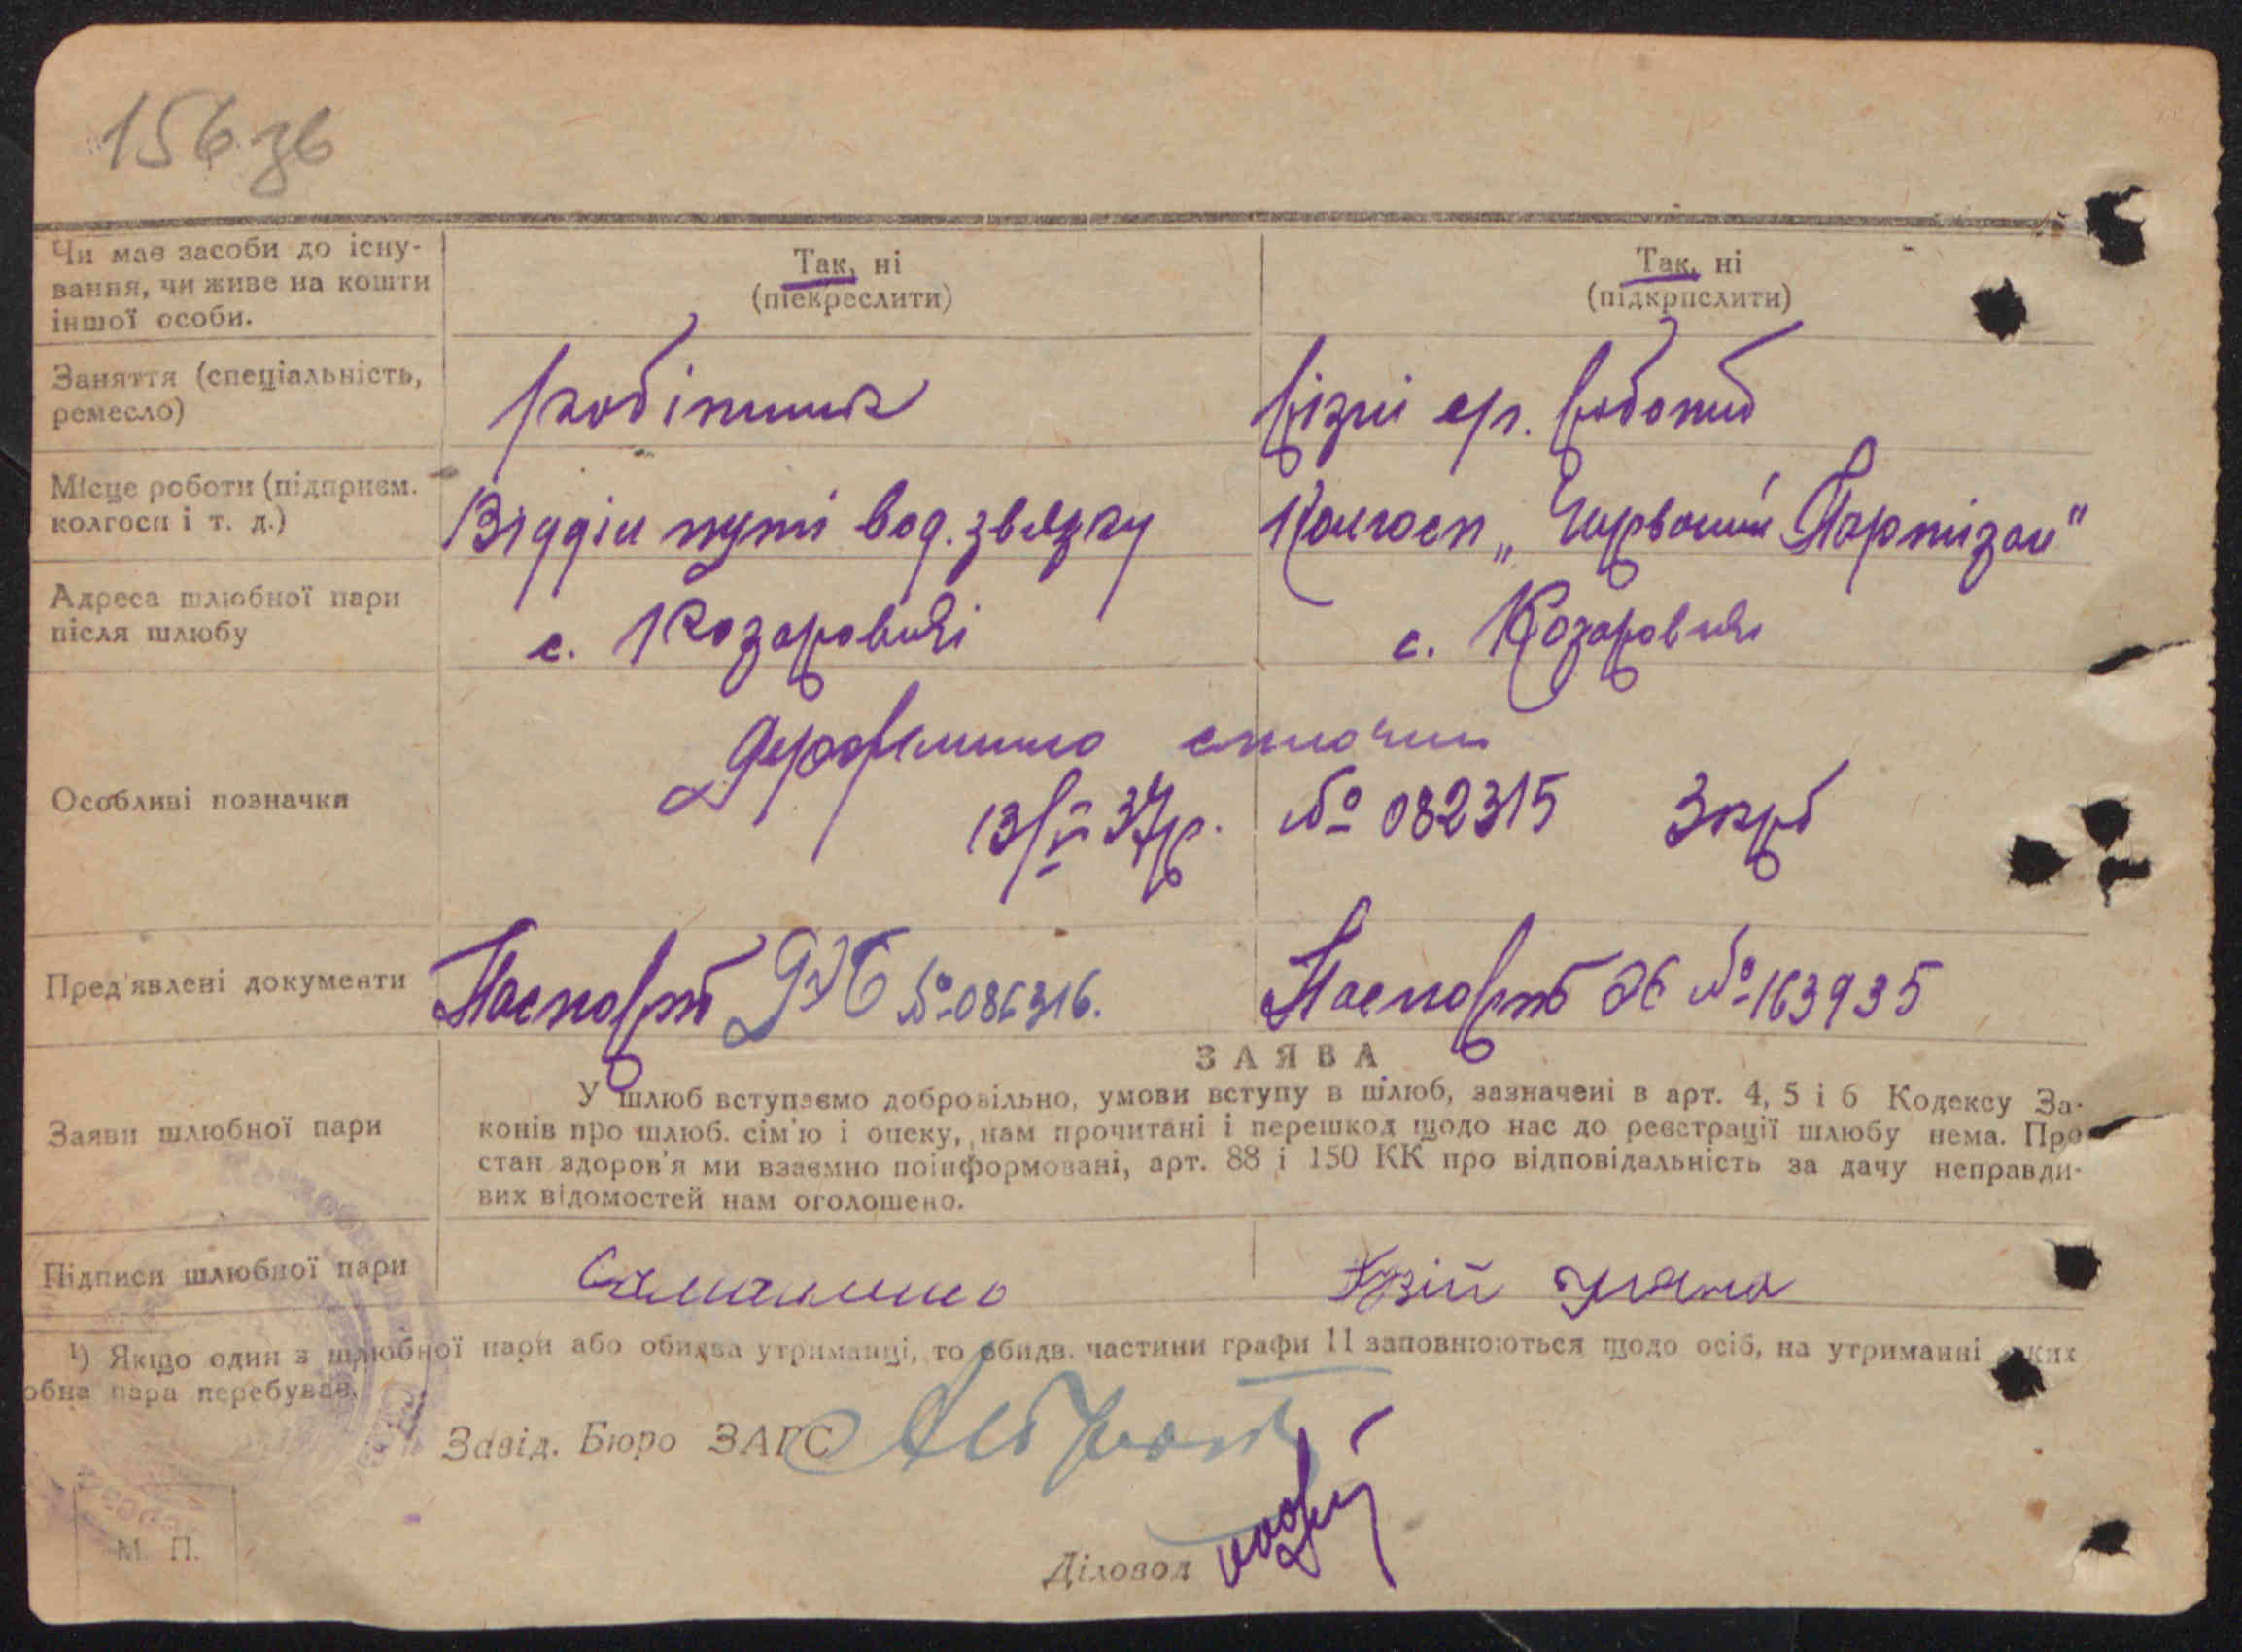 156 зв
Чи має засоби до існу-
вання, чи живе на кошти
іншої особи.
Так, ні
(піекреслити)
Так, ні
(підкрислити)
Заняття (спеціальність,
ремесло)
робітник
різні ср. роботи
Місце роботи (підприєм.
колгосп і т. д.)
Відділ путі вод. звязку
Колгосп „Червоний Партізан"
Адреса шлюбної пари
після шлюбу
с. Козаровичі
с. Козаровичі
Особливі позначки
Держмито сплочен
13/V 37р. № 082315 3 крб
Пред'явлені документи
Паспорт № 086316.
Паспорт ЭЄ № 163935
Заяви шлюбної пари
ЗАЯВА
У шлюб вступаємо добровільно, умови вступу в шілюб, зазначені в арт. 4, 5 і 6 Кодексу За-
конів про шлюб. сім'ю і опеку, нам прочитані і перешкод щодо нас до реєстрації шлюбу нема. Про
стан здоров'я ми взаємно поінформовані, арт. 88 і 150 КК про відповідальність за дачу неправди-
вих відомостей нам оголошено.
Підписи шлюбної пари
¹) Якщо один з шлюбної пари або обидва утриманці, то обидв. частини графи 11 заповнюються щодо осіб, на утриманні яких
обна пара перебуває.
Завід. Бюро ЗАГС
М. П.
Діловод